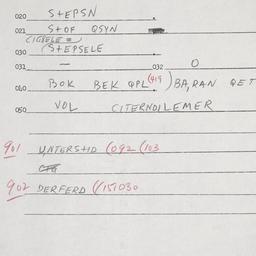 020 S+EPSN
021 S+OF QSYN
030 (S+EPSELE
031 — 032 O
040 BOK BEK QPL (419) BA, RAN QET
050 VOL CITERNDILEMER
901 UNTERS+ID (092 (103
902 DERFERD (/151030